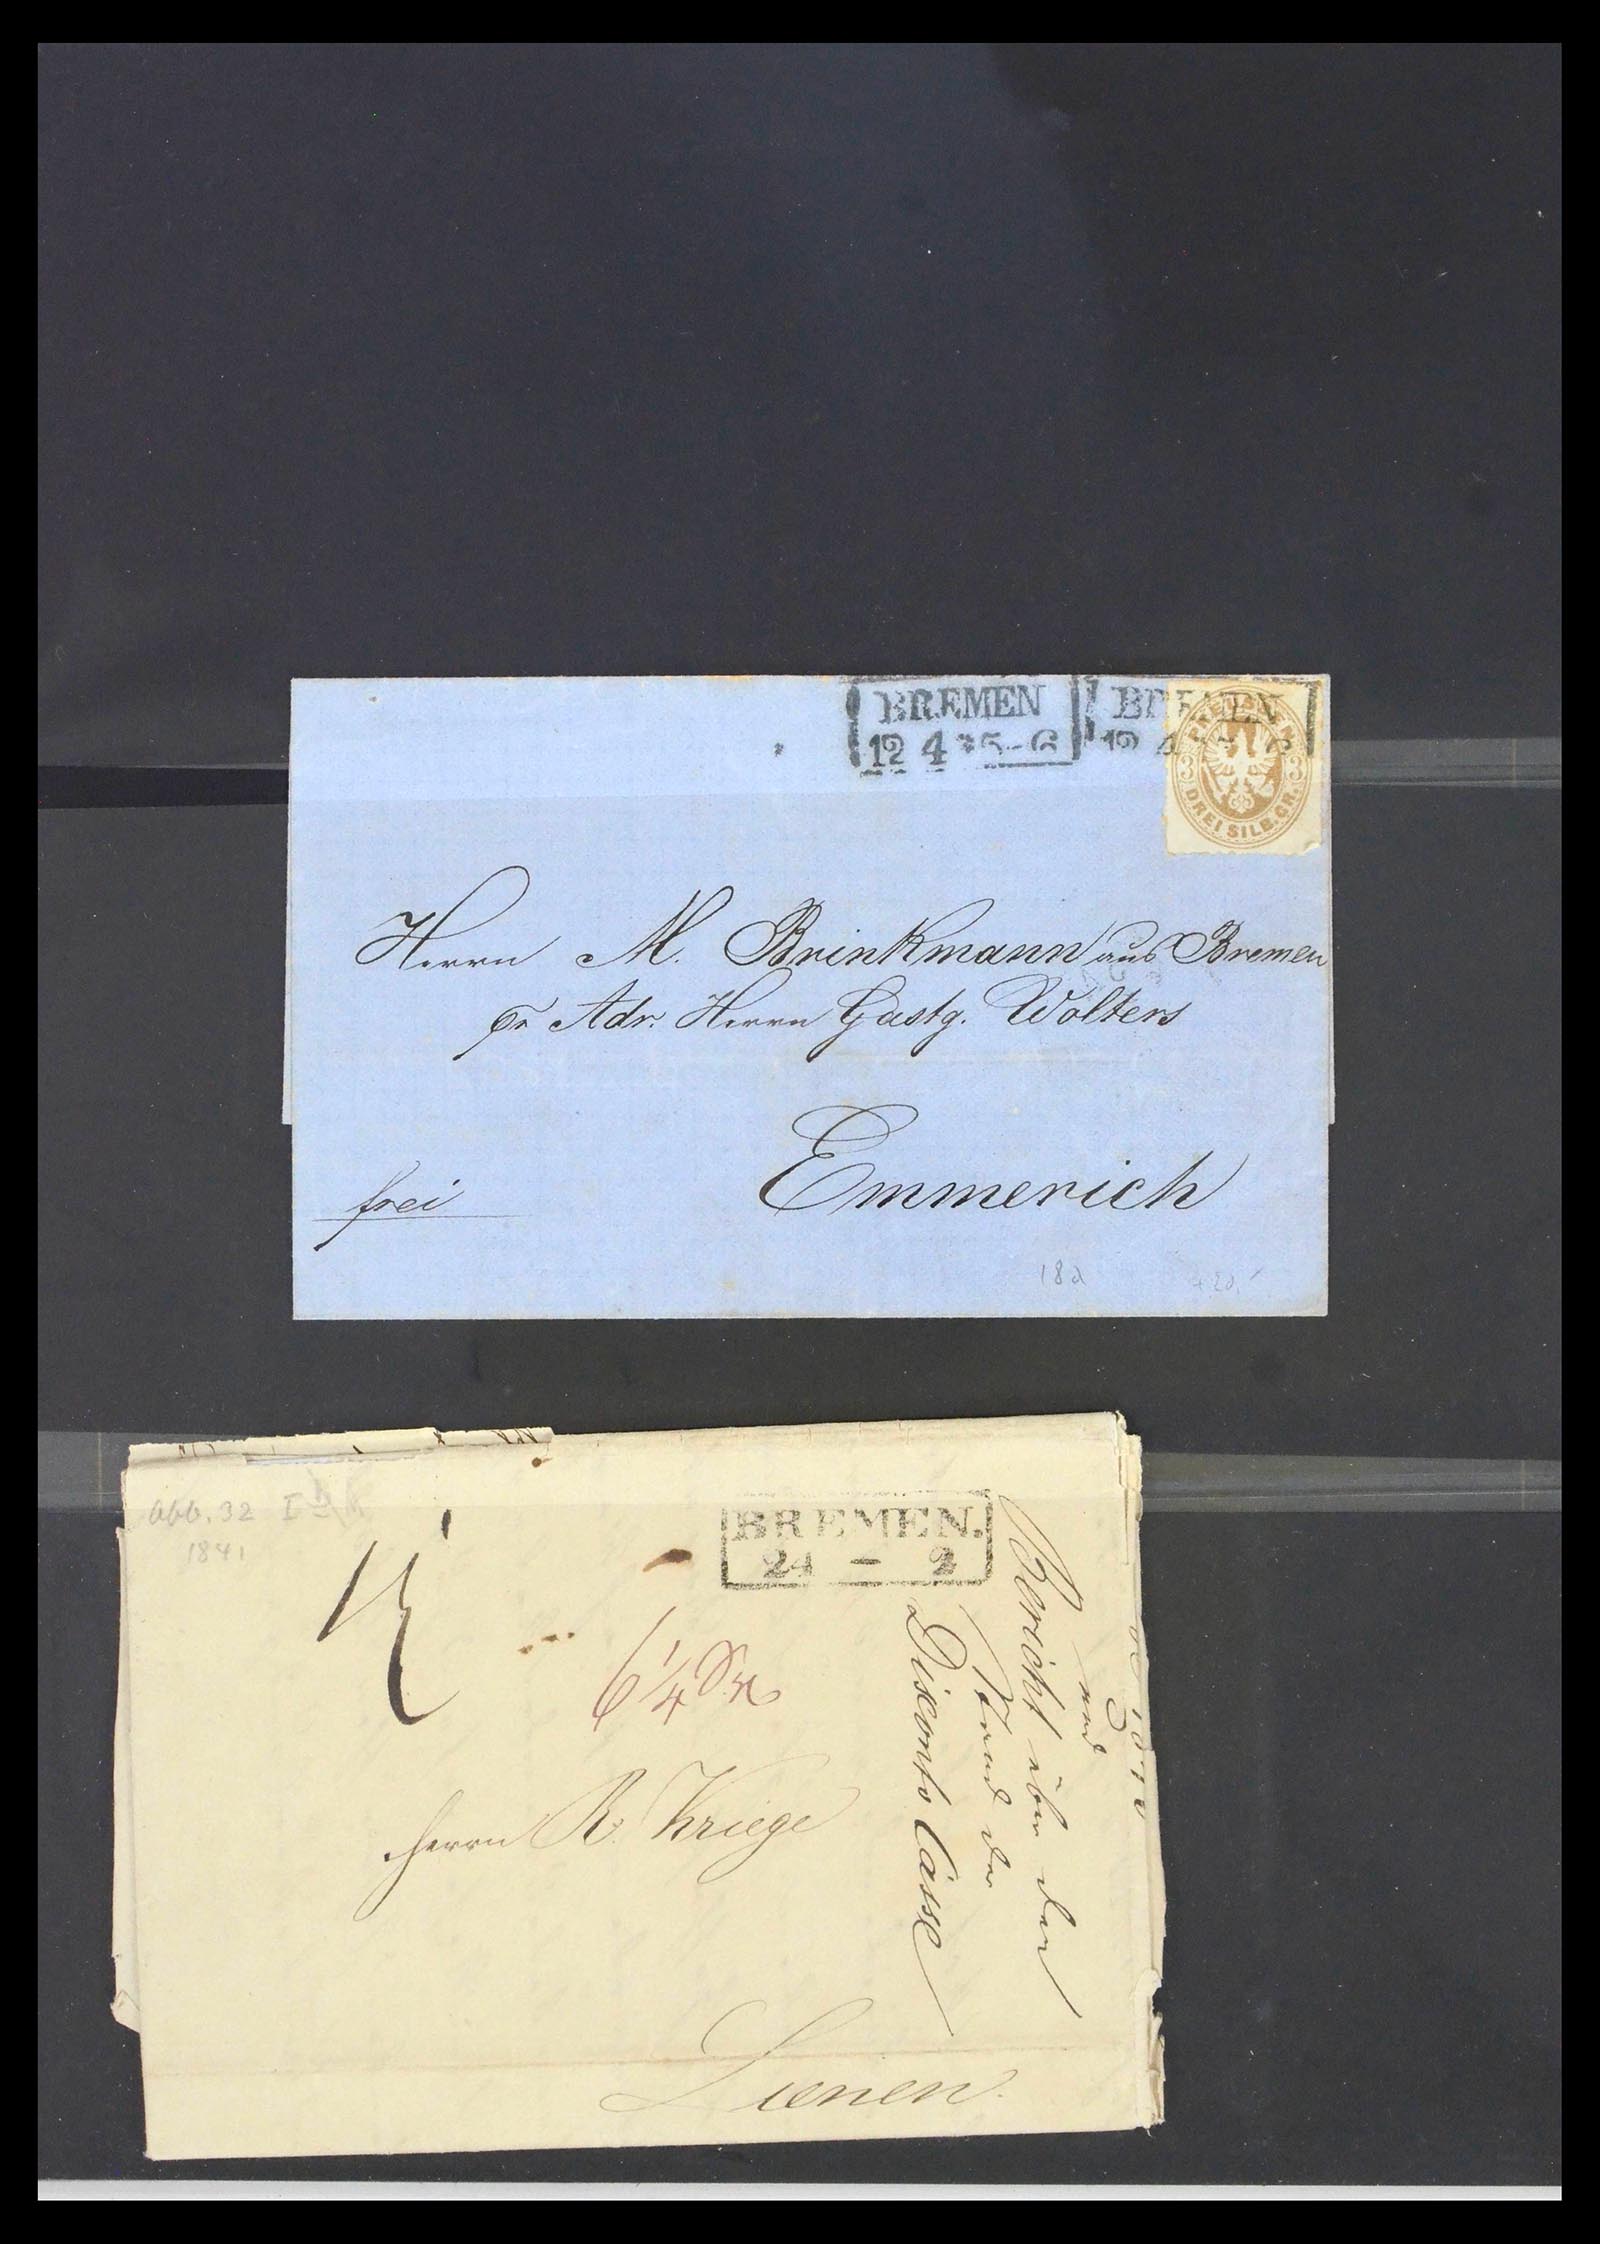 BREMEN BREMEN
12 4 * 5-6 12 4
3 3
DREI SILB. GR.
Herrn M. Brinkmann aus Bremen
pr Adr. Herrn Gastg. Wolters
Emmerich
frei
18a
+20,-
Abb. 32 I
1841
BREMEN.
24 — 2
6 1/4 Sr
Herrn R. Kriege
Lienen.
und
Bericht über den
Stand der
Disconto Casse